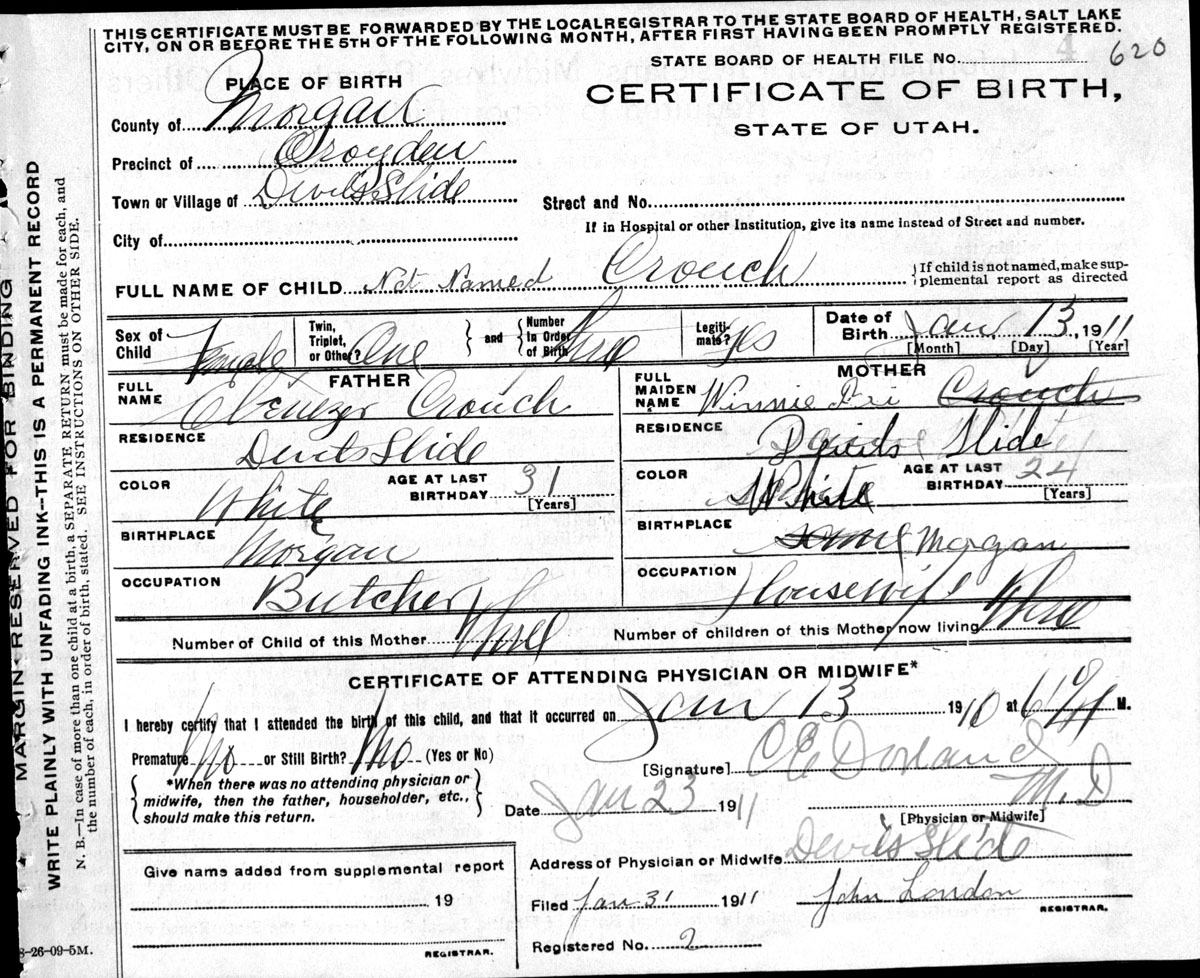 THIS CERTIFICATE MUST BE FORWARDED BY THE LOCAL REGISTRAR TO THE STATE BOARD OF HEALTH, SALT LAKE
CITY, ON OR BEFORE THE 5TH OF THE FOLLOWING MONTH, AFTER FIRST HAVING BEEN PROMPTLY REGISTERED.
STATE BOARD OF HEALTH FILE No. 4 620
PLACE OF BIRTH
CERTIFICATE OF BIRTH,
STATE OF UTAH.
County of Morgan
Precinct of Croyden
Town or Village of Devils Slide
Street and No.
If in Hospital or other Institution, give its name instead of Street and number.
City of
FULL NAME OF CHILD Not Named Crouch
{If child is not named, make sup-
plemental report as directed
Sex of Child Female
Twin, Triplet, or Other? One
and Number in Order of Birth Three
Legiti-mate? Yes
Date of Birth Jan 13, 1911
[Month] [Day] [Year]
FATHER
MOTHER
FULL NAME Ebenezer Crouch
FULL MAIDEN NAME Winnie Crouch
RESIDENCE Devils Slide
RESIDENCE Devils Slide
COLOR White
AGE AT LAST BIRTHDAY 31 [Years]
COLOR White
AGE AT LAST BIRTHDAY 24 [Years]
BIRTHPLACE Morgan
BIRTHPLACE Morgan
OCCUPATION Butcher
OCCUPATION Housewife
Number of Child of this Mother Three
Number of children of this Mother now living Three
CERTIFICATE OF ATTENDING PHYSICIAN OR MIDWIFE*
I hereby certify that I attended the birth of this child, and that it occurred on Jan 13 1910 at 6 M.
Premature No or Still Birth? No (Yes or No)
*When there was no attending physician or
midwife, then the father, householder, etc.,
should make this return.
[Signature] C E M.D
[Physician or Midwife]
Date Jan 23 1911
Address of Physician or Midwife Devils Slide
Give name added from supplemental report
19
REGISTRAR.
Filed Jan 31 1911 John London
REGISTRAR.
Registered No. 2
8-26-09-5M.
MARGIN RESERVED FOR BINDING
WRITE PLAINLY WITH UNFADING INK--THIS IS A PERMANENT RECORD
N. B.—In case of more than one child at a birth, a SEPARATE RETURN must be made for each, and
the number of each, in order of birth, stated. SEE INSTRUCTIONS ON OTHER SIDE.